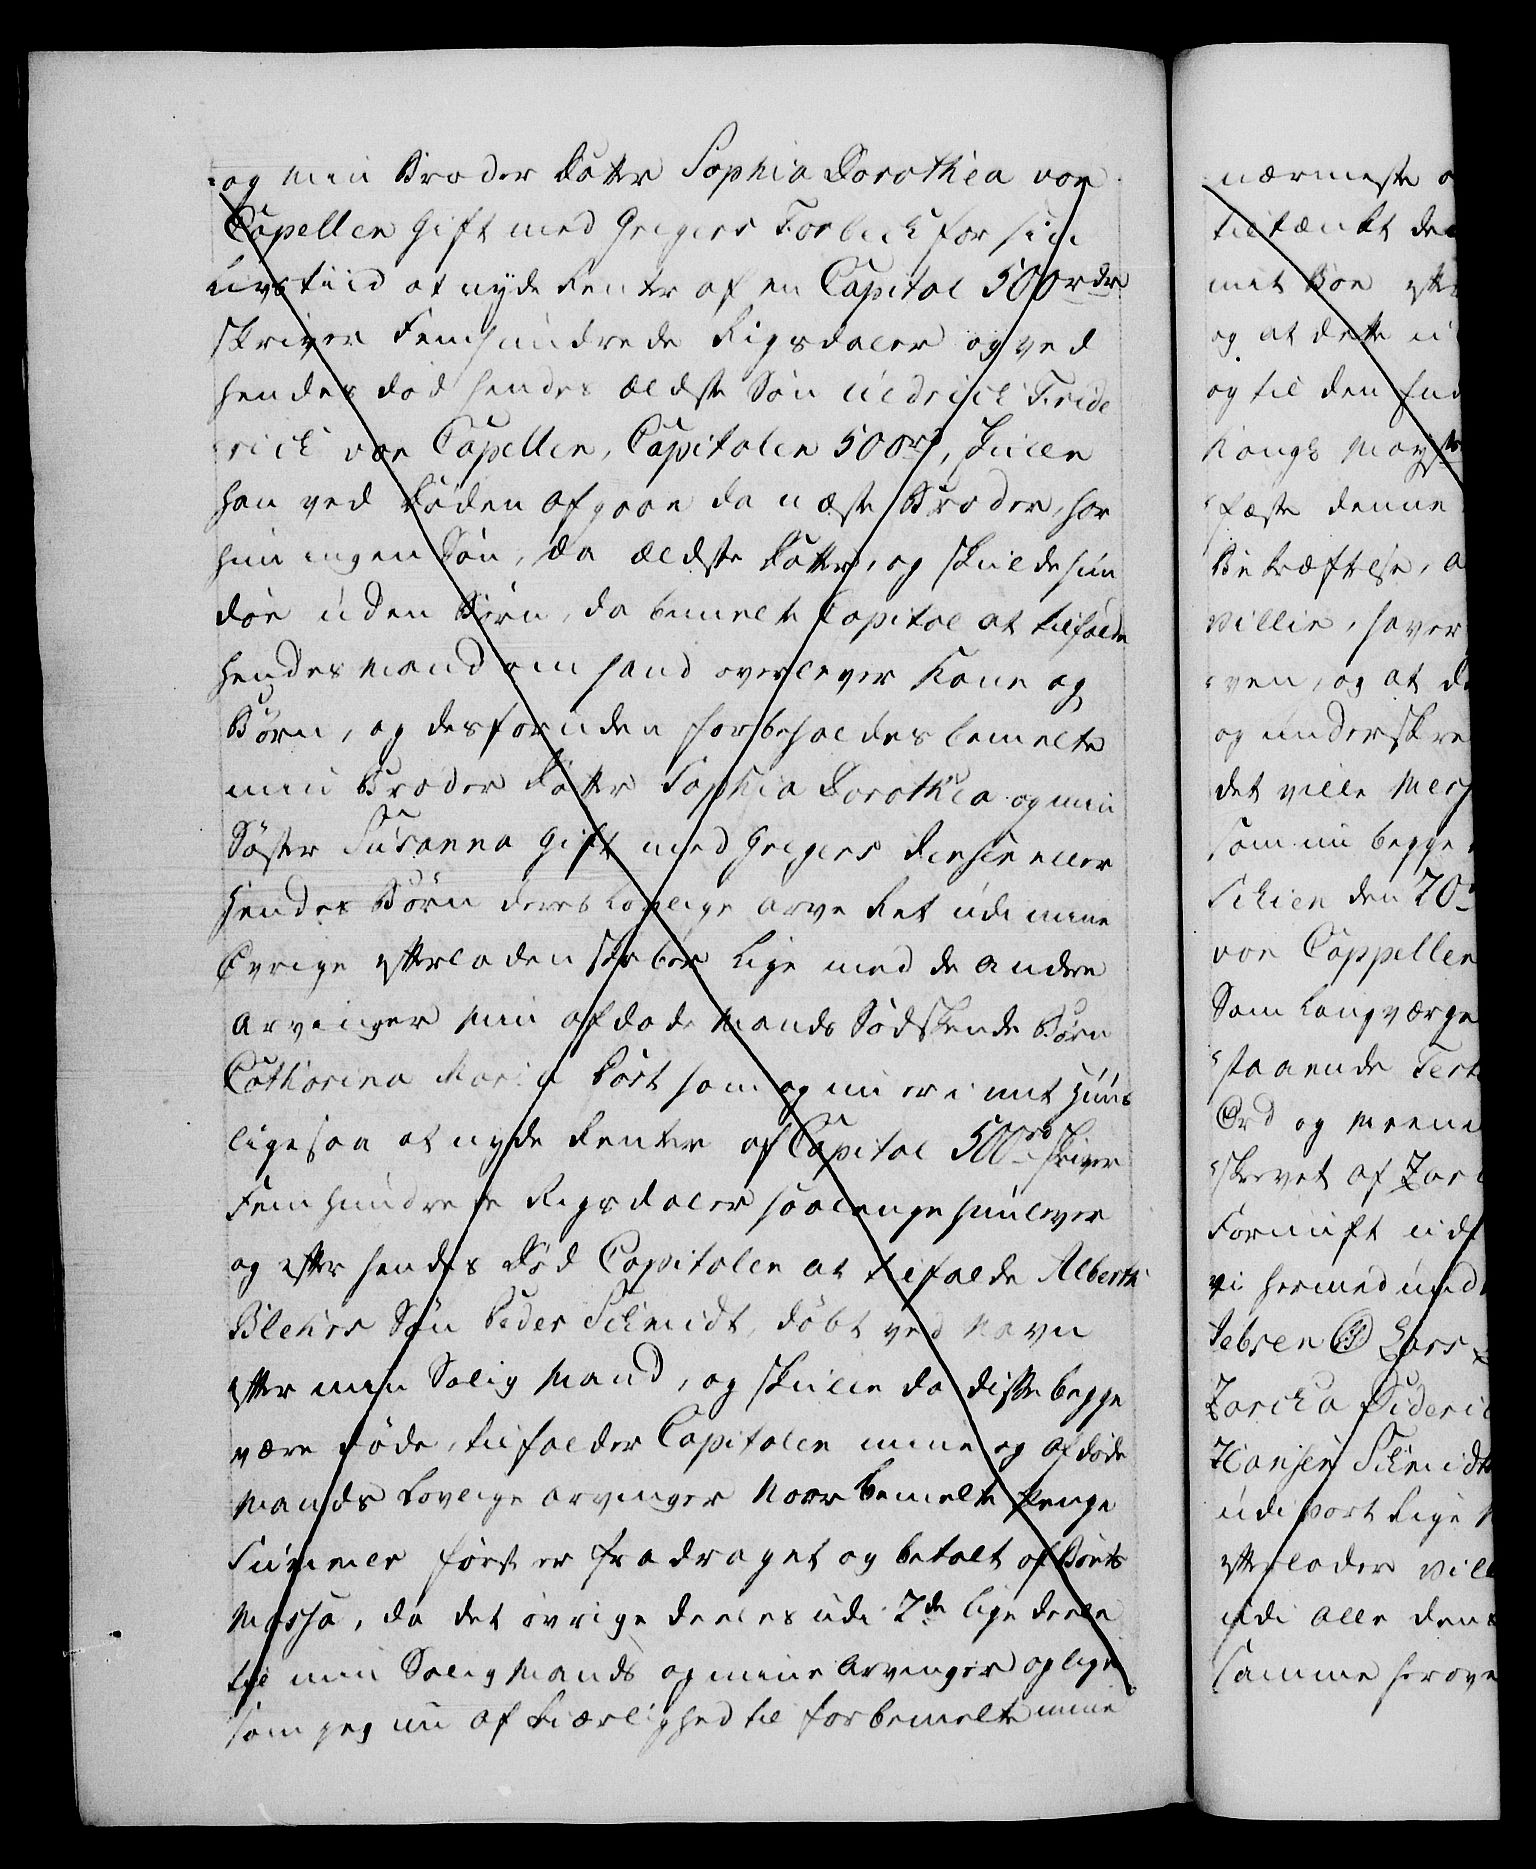 og min Broder Datter Sophia Dorothea von
Capellen Gift med Gregers Forbech for sin
Livstiid at nyde Renter af en Capital 500rdr
skriver Femhundrede Rigsdaler og ved
hendes død hendes ældste Søn Uldrich Fride
rich von Capellen, Capitalen 500rd, skulle
han ved Døden afgaae da næste Broder, har
hun ingen Søn, da ældste Datter, og skulde hun
døe uden Børn, da bemelte Capital at tilfalde
hendes Mand om hand overlever Kone og
Børn, og desforuden forbeholdes bemelte
min Broder Datter Sophia Dorothea og min
Søster Susanna Gift med Gregers Jensen eller
hendes Børn deres Lovlige arve Ret udi mine
Øvrige efterladenskaber lige med de andre
Arvinger min afdøde Mands Sødskende Børn
Catharina Maria som og nu er i mit Huus
ligesaa at nyde Renter af Capital 500rd skriver
Femhundrede Rigsdaler saalenge hun lever
og efter hendes Død Capitalen at tilfalde Alberth
Blehrs Søn Peder Schmidt, døbt ved Navn
efter min Salig Mand, og skulle da disse begge
være døde, tilfalder Capitalen mine og afdøde
Mands Lovlige arvinger Naar bemelte Penge
Summer først er fradraget og betalt af Boets
Massa, da det øvrige deeles udi 2de lige deele
til min Salig Mands og mine Arvinger og lige
som jeg nu af Kiærlighed til forbemelte mine
nærmeste
tiltænkt
mit Boe
og at dette
og til den
Kongl Mayts
fæste denne
Bekræftelse,
villie, haver
ven, og at
og underskre
det ville
som nu begge
Schien den 20
von Cappellen
Som Laugværge
staaende
Ord og Meeni
skrevet af
Fornuft
vi hermed
Jebsen Lars
Diderich
Hansen Schmidt
udi vort Rige
efterlader
udi alle
samme herove